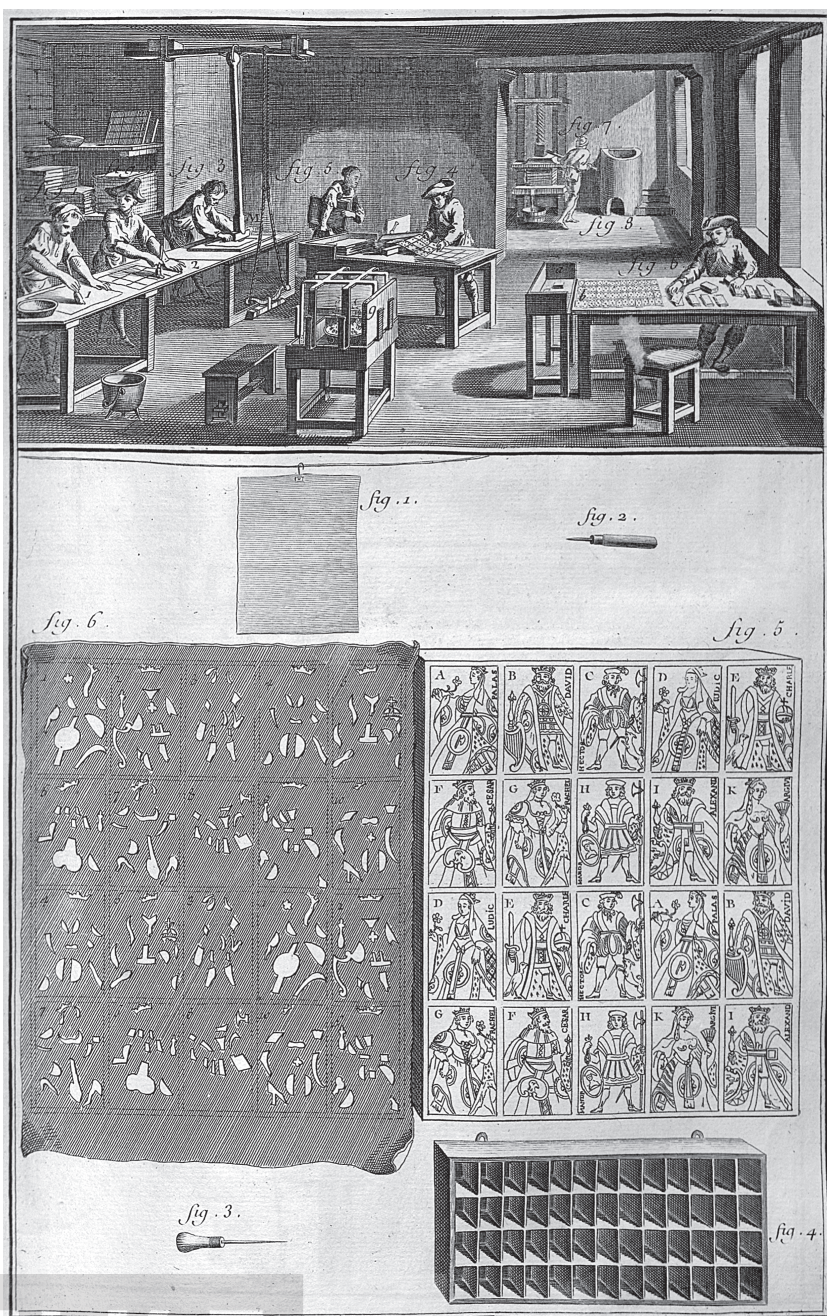 fig 7.
fig 3
fig 5.
fig 4
fig 8.
fig 6
2
9
fig. 1.
fig. 2.
fig. 6.
fig. 5.
1
2
A PALAS
B DAVID
C HECTOR
D IUDIC
E CHARLE
F CESAR
G RACHEL
H
I ALEXAND
K ARGIN
D IUDIC
E CHARLE
C HECTOR
A PALAS
B DAVID
G RACHEL
F CESAR
H
K ARGIN
I ALEXAND
fig. 3.
fig. 4.